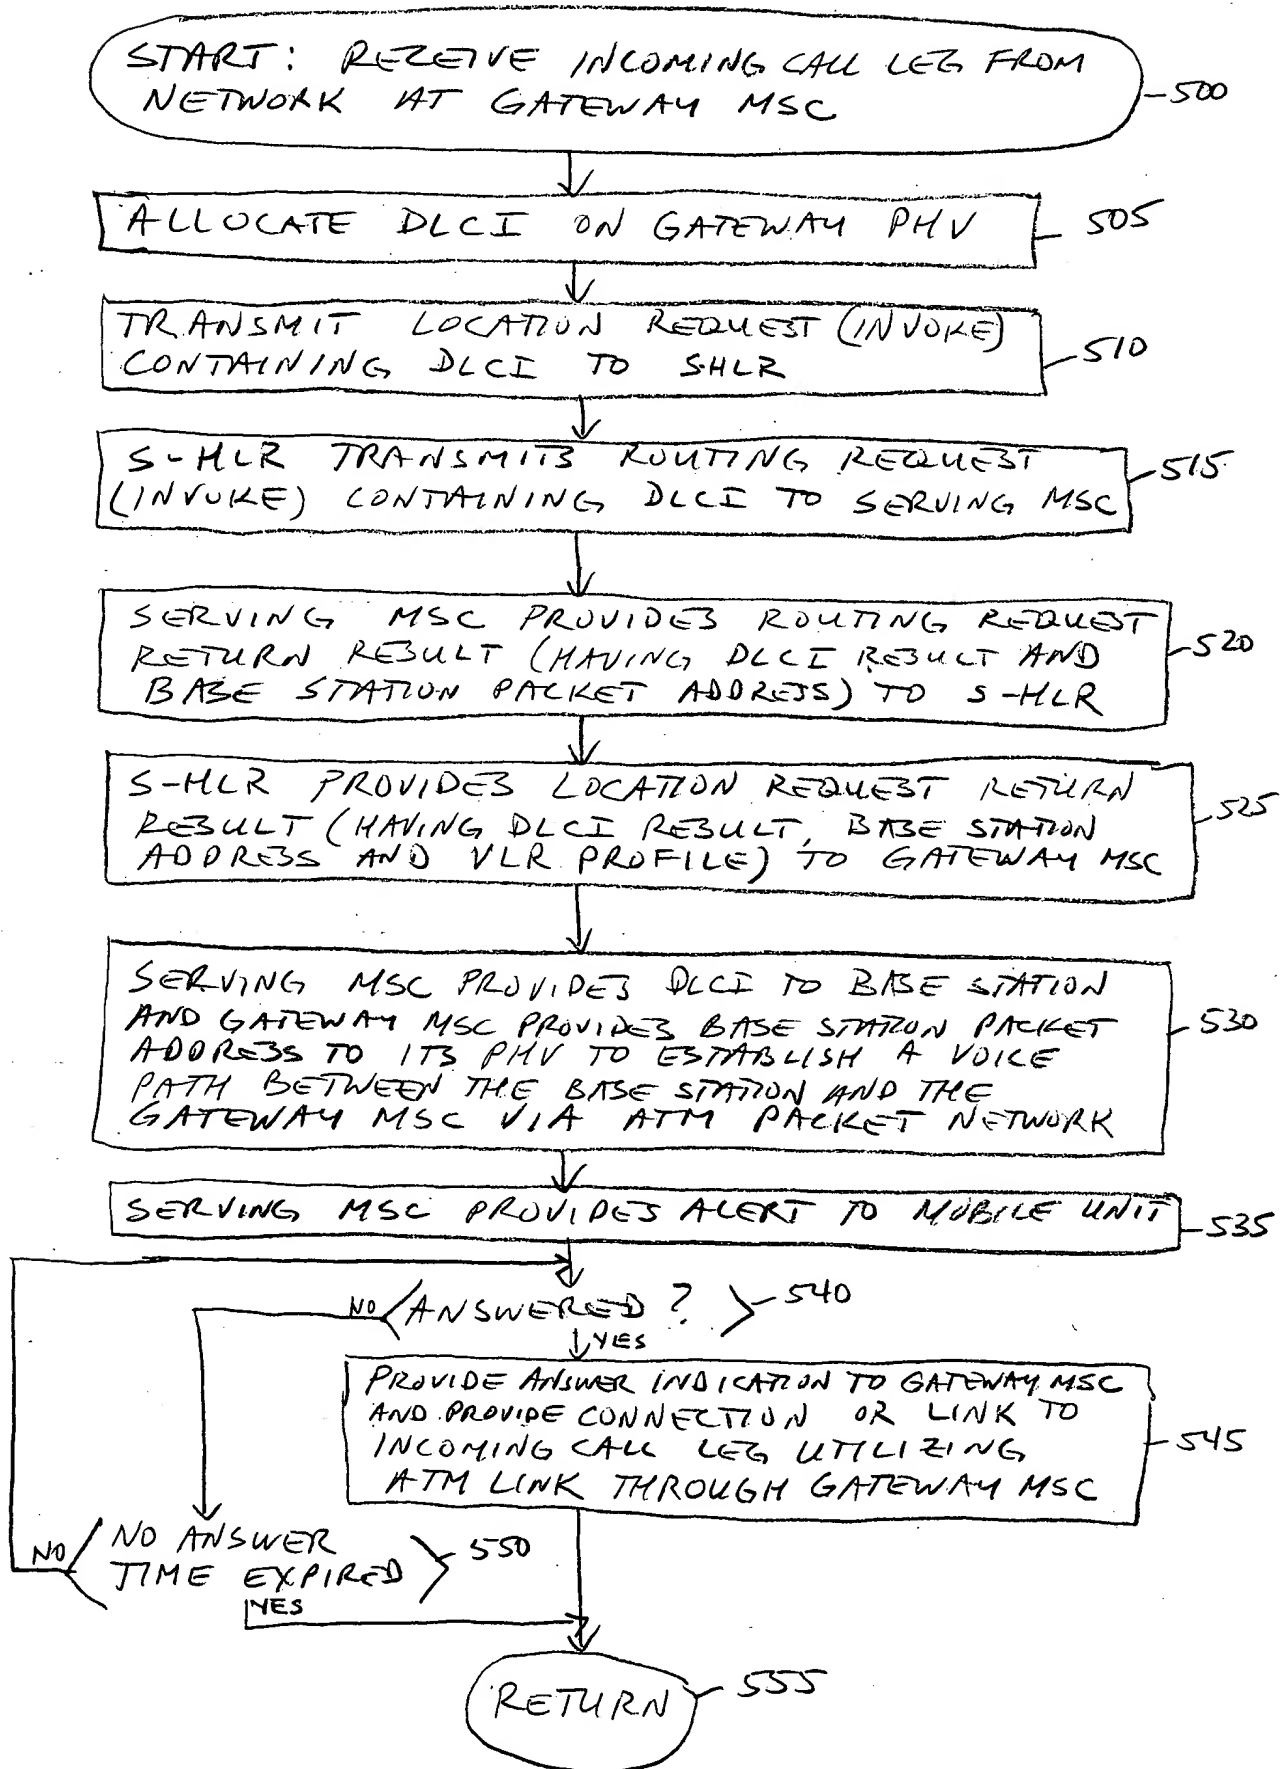 START: RECEIVE INCOMING CALL LEG FROM
NETWORK AT GATEWAY MSC
500
ALLOCATE DLCI ON GATEWAY PHV
505
TRANSMIT LOCATION REQUEST (INVOKE)
CONTAINING DLCI TO S-HLR
510
S-HLR TRANSMITS ROUTING REQUEST
(INVOKE) CONTAINING DLCI TO SERVING MSC
515
SERVING MSC PROVIDES ROUTING REQUEST
RETURN RESULT (HAVING DLCI RESULT AND
BASE STATION PACKET ADDRESS) TO S-HLR
520
S-HLR PROVIDES LOCATION REQUEST RETURN
RESULT (HAVING DLCI RESULT, BASE STATION
ADDRESS AND VLR PROFILE) TO GATEWAY MSC
525
SERVING MSC PROVIDES DLCI TO BASE STATION
AND GATEWAY MSC PROVIDES BASE STATION PACKET
ADDRESS TO ITS PHV TO ESTABLISH A VOICE
PATH BETWEEN THE BASE STATION AND THE
GATEWAY MSC VIA ATM PACKET NETWORK
530
SERVING MSC PROVIDES ALERT TO MOBILE UNIT
535
NO
ANSWERED?
540
YES
PROVIDE ANSWER INDICATION TO GATEWAY MSC
AND PROVIDE CONNECTION OR LINK TO
INCOMING CALL LEG UTILIZING
ATM LINK THROUGH GATEWAY MSC
545
NO
NO ANSWER
TIME EXPIRED
550
YES
RETURN
555